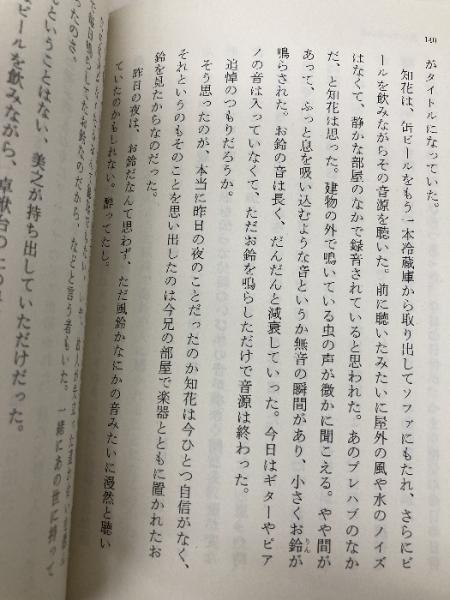 140
がタイトルになっていた。
知花は、缶ビールをもう一本冷蔵庫から取り出してソファにもたれ、さらにビ
ールを飲みながらその音源を聴いた。前に聴いたみたいに屋外の風や水のノイズ
はなくて、静かな部屋のなかで録音されていると思われた。あのプレハブのなか
だ、と知花は思った。建物の外で鳴いている虫の声が微かに聞こえる。やや間が
あって、ふっと息を吸い込むような音というか無音の瞬間があり、小さくお鈴が
りん
鳴らされた。お鈴の音は長く、だんだんと減衰していった。今日はギターやピア
ノの音は入っていなくて、ただお鈴を鳴らしただけで音源は終わった。
追悼のつもりだろうか。
そう思ったのが、本当に昨日の夜のことだったのか知花は今ひとつ自信がなく、
それというのもそのことを思い出したのは今兄の部屋で楽器とともに置かれたお
鈴を見たからなのだった。
昨日の夜は、お鈴だなんて思わず、ただ風鈴かなにかの音みたいに漫然と聴い
ていたのかもしれない。酔ってたし。
などと言う者もいた。一緒にあの世に持って
ということはない、美之が持ち出していただけだった。
ビールを飲みながら、卓袱台の上の